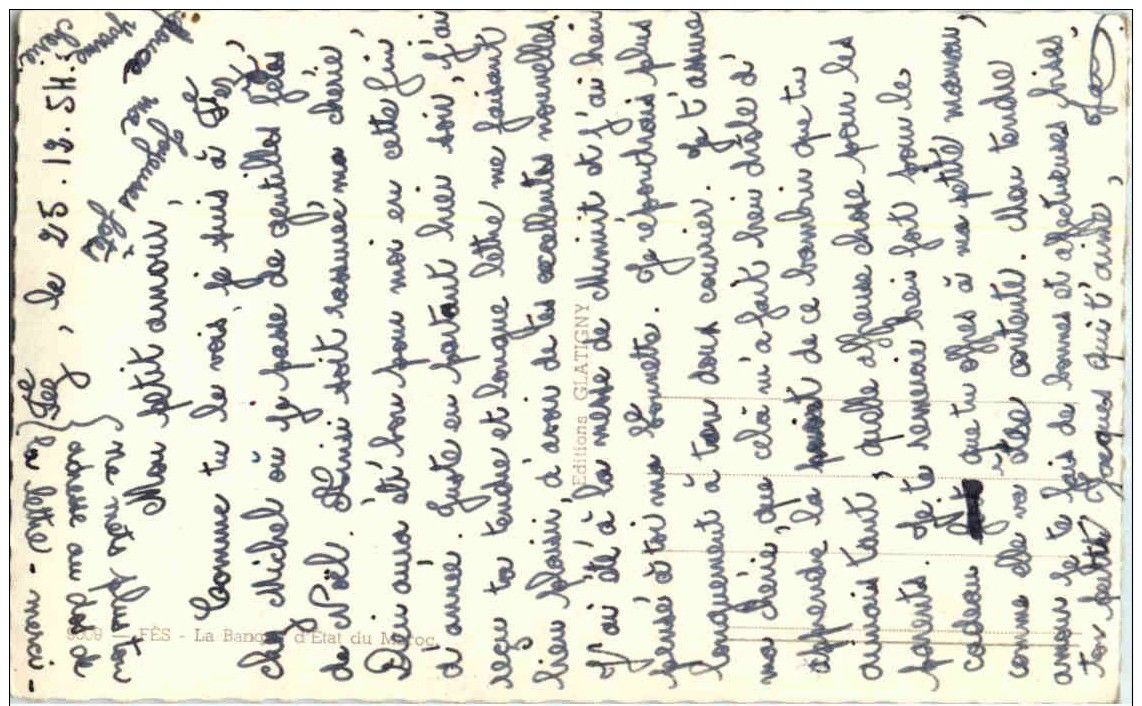 Fès, le 25.12.54.
Mon petit amour,
Comme tu le vois, je suis à Fès,
chez Michel où je passe de gentilles fêtes
de Noël. Ainsi soit rassurée ma chérie
Dieu aura été bon pour moi en cette fin
d'année. Juste en partant hier soir, j'ai
reçu ta tendre et longue lettre me faisant
bien plaisir d'avoir de tes excellentes nouvelles.
J'ai été à la messe de Minuit et j'ai bien
pensé à toi ma bonnette. Je répondrais plus
longuement à ton doux courrier. Je t'assure
ma chérie, que celà m'a fait bien drôle d'
apprendre la mort de ce bambin que tu
aimais tant, quelle affreuse chose pour les
parents. Je te remercie bien fort pour le
cadeau que tu offres à ma petite maman,
comme elle va être contente. Mon tendre
amour je te fais de bonnes et affectueuses bises
ton petit Jacques qui t'aime,
Jacques
Douce
Yvonne
chérie
ma
Joyeuses
fête
la lettre - merci -
réponse au dos de
na mets plus ton
9008 — FÈS - La Banque d'Etat du Maroc
Editions GLATIGNY